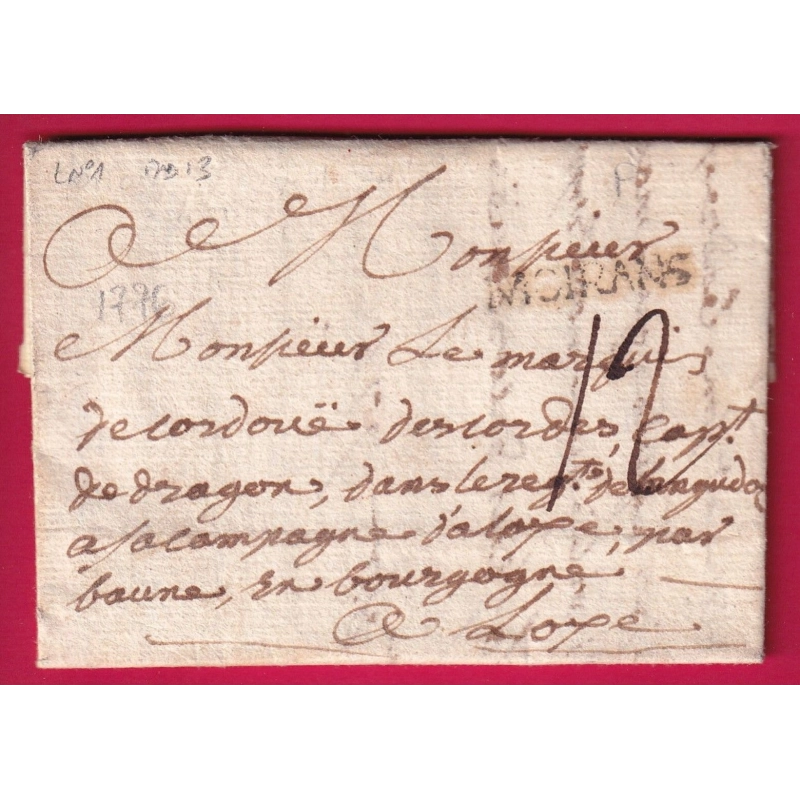 L N°1 13
P
A Monsieur
MOIRANS
1776
Monsieur Le marquis
12
de cordouë descordes, capt.
de dragon, dans le regt. de languedoc
a sa campagne d'aloxe, par
baune, En bourgogne,
a Loxe